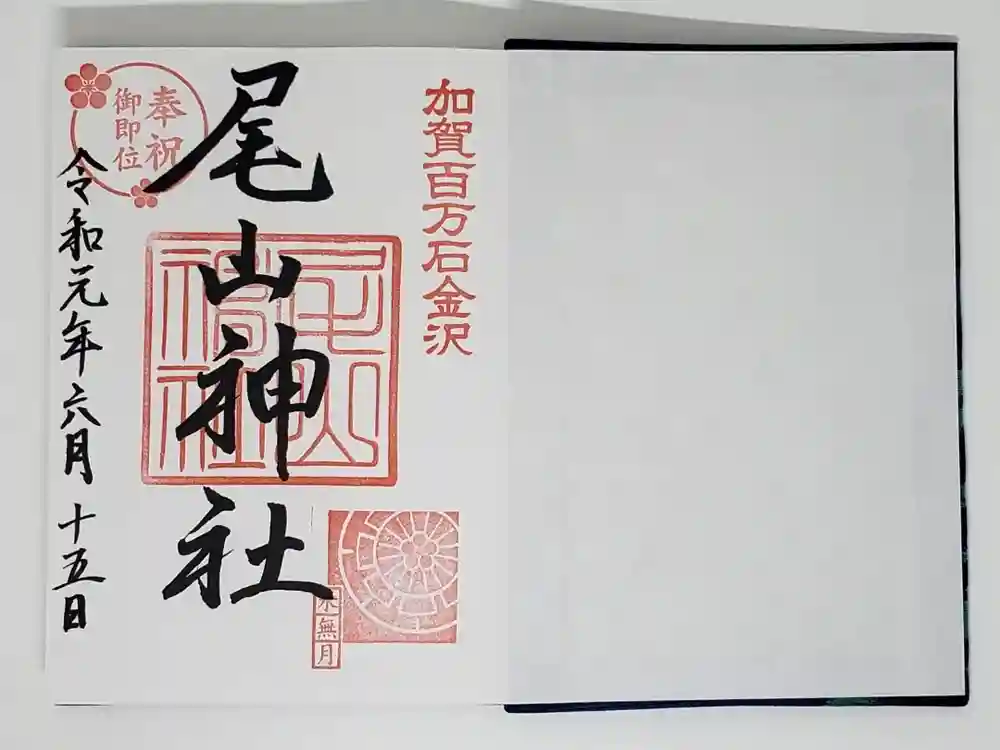 加賀百万石金沢
奉祝
御即位
尾山神社
尾山神社
水無月
令和元年六月十五日